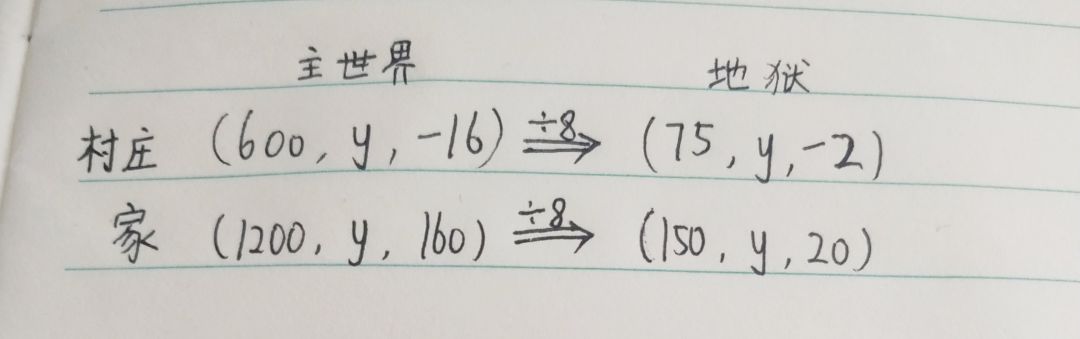 主世界 地狱
村庄 (600, y, -16) ÷8⇒ (75, y, -2)
家 (1200, y, 160) ÷8⇒ (150, y, 20)